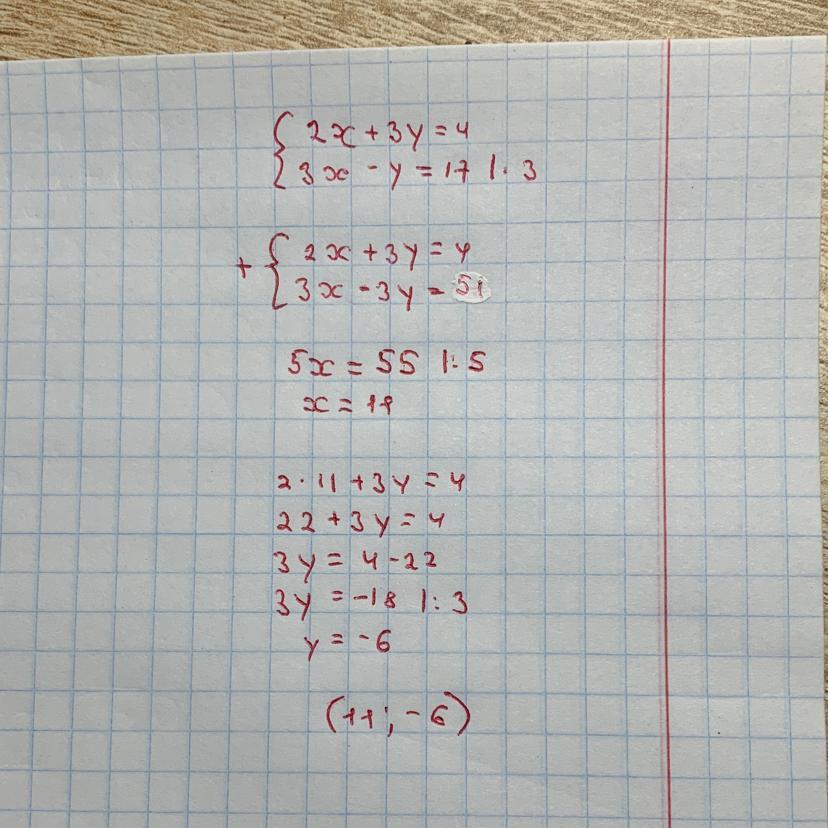 { 2x + 3y = 4
3x - y = 17 | · 3
+ { 2x + 3y = 4
3x - 3y = 51
5x = 55 |: 5
x = 11
2 · 11 + 3y = 4
22 + 3y = 4
3y = 4 - 22
3y = -18 |: 3
y = -6
(11; -6)